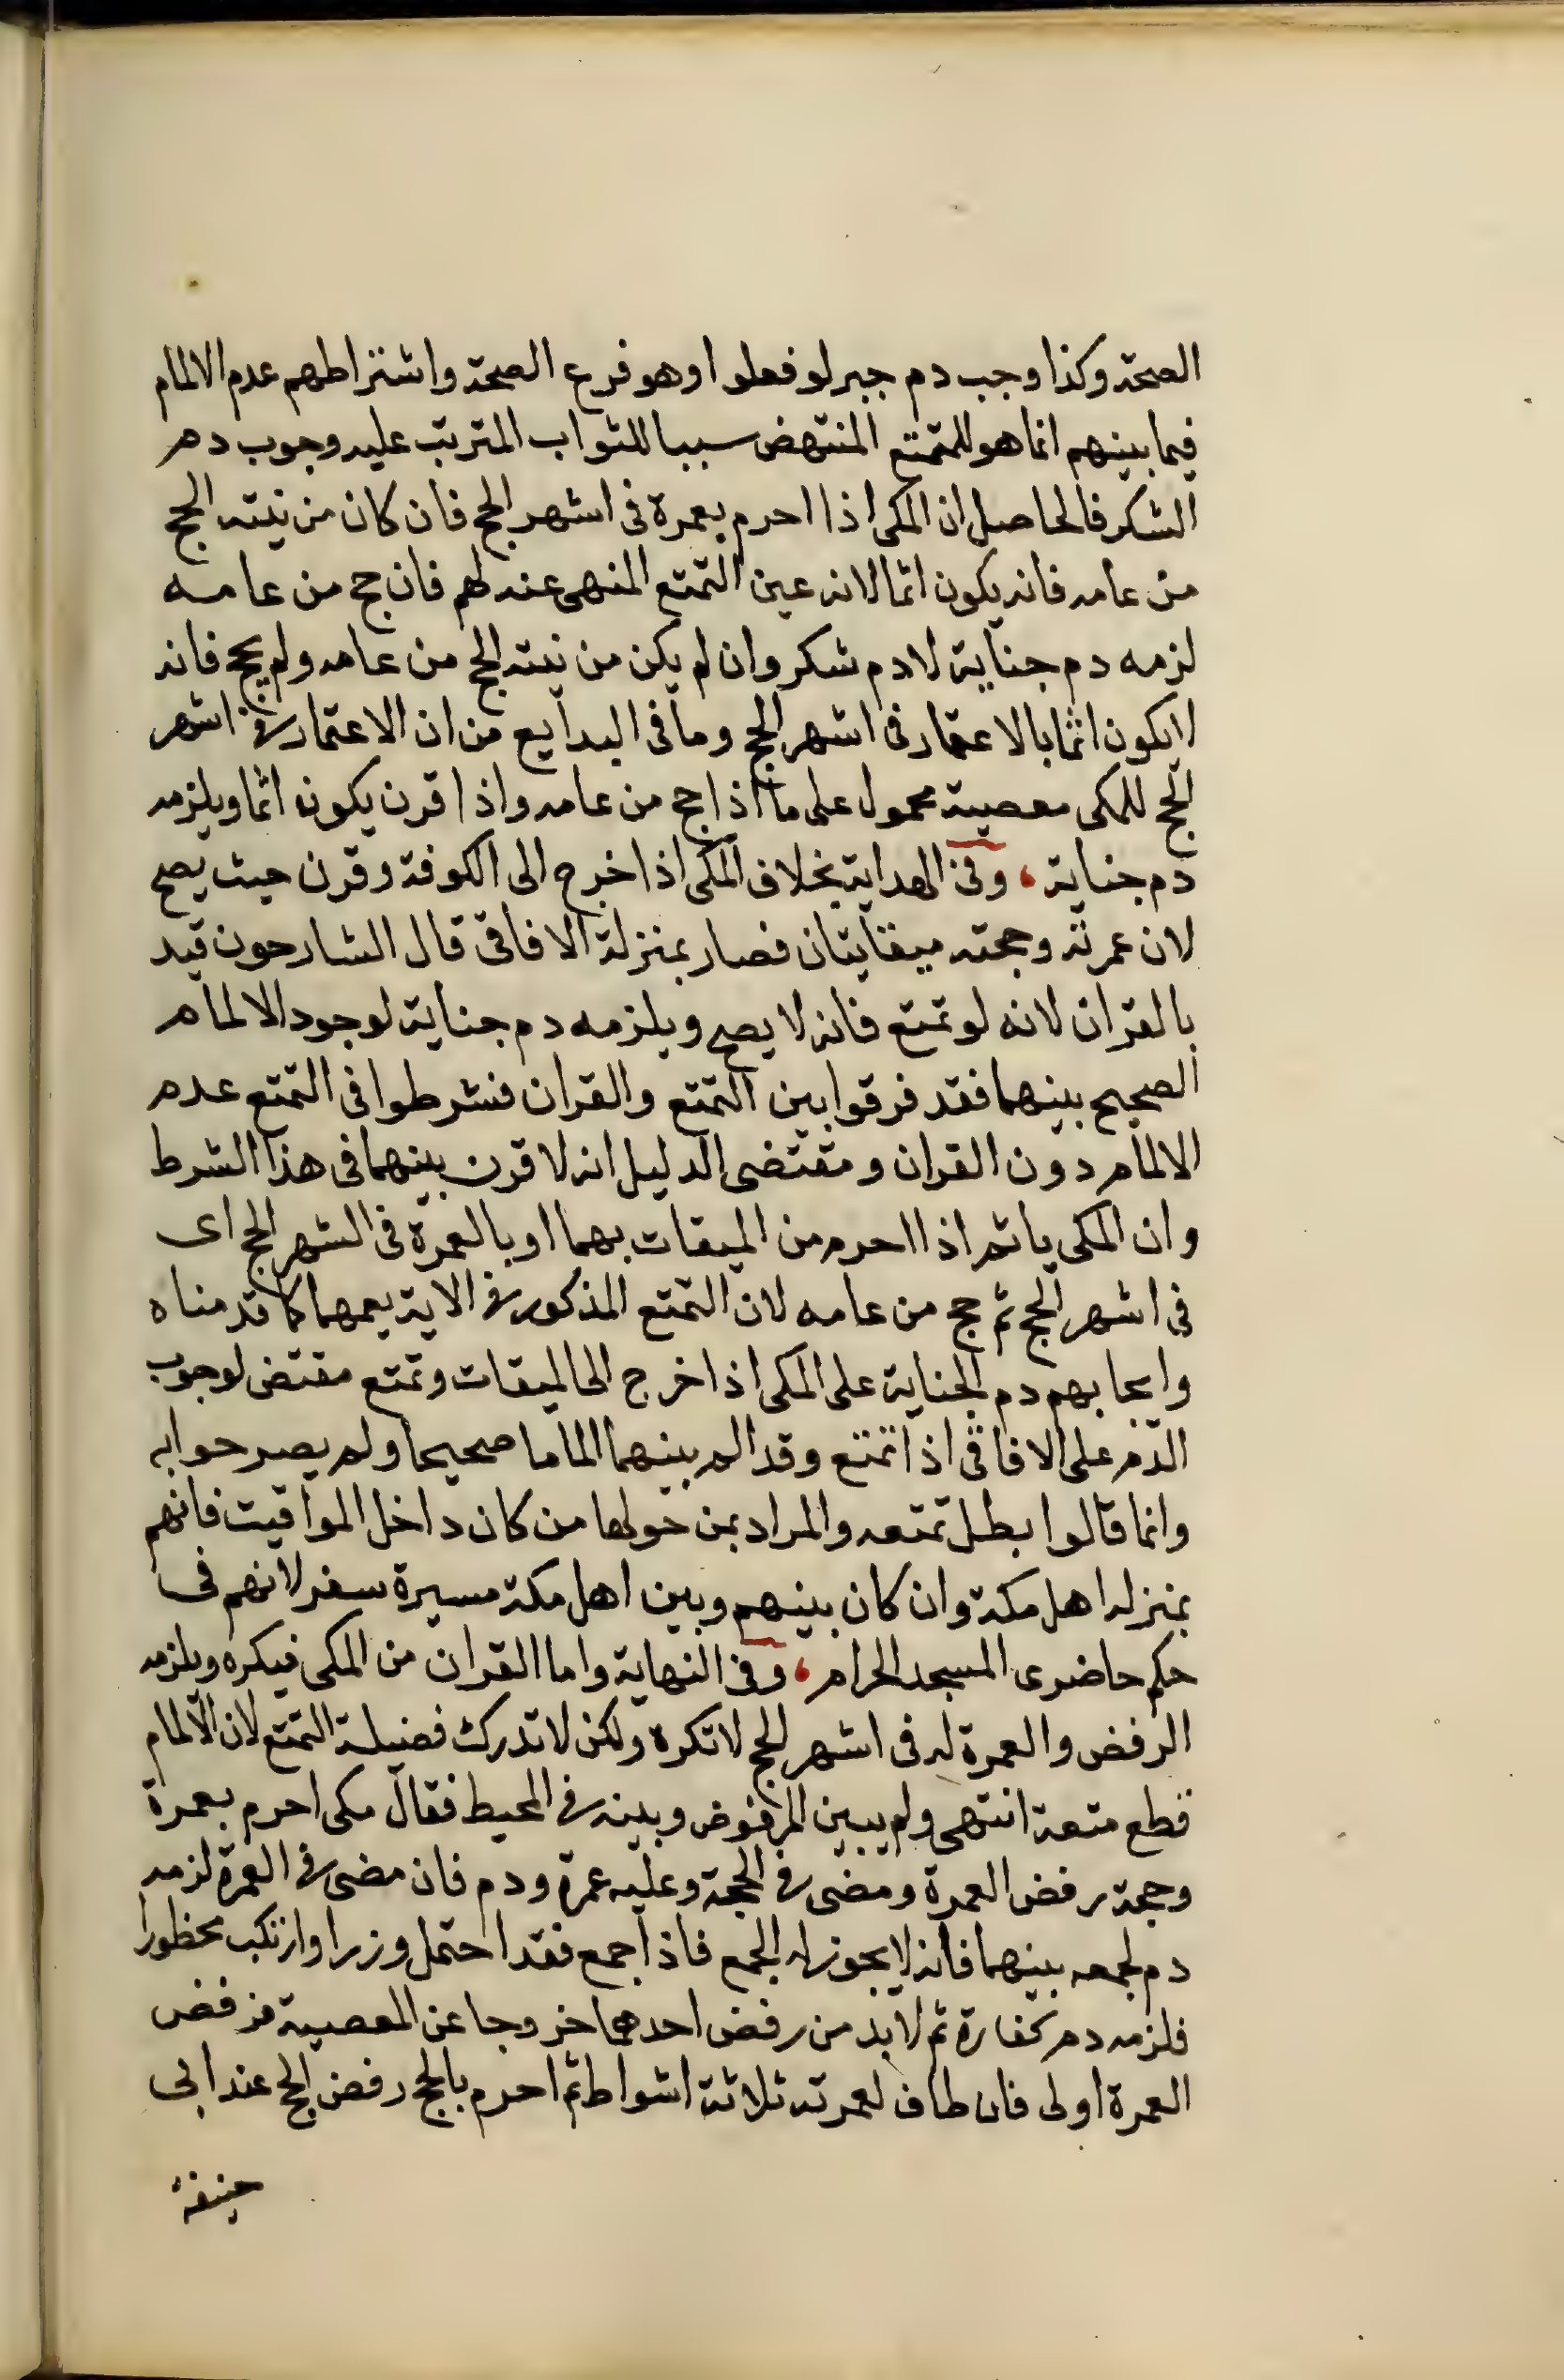 الصحة وكذا وجب دم جبر لو فعلوا وهو فرع الصحة واشتراطهم عدم الالمام
فيما بينهم انما هو للتمتع المنتهض سببا للثواب المترتب عليه وجوب دم
الشكر فالحاصل ان المكى اذا احرم بعمرة فى اشهر الحج فان كان من نيته الحج
من عامه فانه يكون اثما لانه عين التمتع المنهى عنه لهم فان حج من عامه
لزمه دم جناية لا دم شكر وان لم يكن من نيته الحج من عامه ولم يحج فانه
لا يكون اثما بالاعتمار فى اشهر الحج وما فى البدايع من ان الاعتمار فى اشهر
الحج للمكى معصية محمول على ما اذا حج من عامه واذا قرن يكون اثما ويلزمه
دم جناية، وفى الهداية بخلاف المكى اذا خرج الى الكوفة وقرن حيث يصح
لان عمرته وحجته ميقاتيتان فصار بمنزلة الافاقى قال الشارحون قيد
بالقران لانه لو تمتع فانه لا يصح ويلزمه دم جناية لوجود الالمام
الصحيح بينهما فقد فرقوا بين التمتع والقران فشرطوا فى التمتع عدم
الالمام دون القران ومقتضى الدليل انه لا قرن بينهما فى هذا الشرط
وان المكى ياثم اذا احرم من الميقات بهما او بالعمرة فى الشهر الحج اى
فى اشهر الحج ثم حج من عامه لان التمتع المذكور فى الاية يعمهما كما قدمناه
وايجابهم دم الجناية على المكى اذا خرج الى الميقات وتمتع مقتض لوجوب
الدم على الافاقى اذا تمتع وقد الم بينهما الماما صحيحا ولم يصرحوا به
وانما قالوا بطل تمتعه والمراد بمن حولها من كان داخل المواقيت فانهم
بمنزلة اهل مكة وان كان بينهم وبين اهل مكة مسيرة سفر لانهم فى
حكم حاضرى المسجد الحرام، وفى النهاية واما القران من المكى فيكره ويلزمه
الرفض والعمرة له فى اشهر الحج لا تكره ولكن لا تدرك فضيلة التمتع لان الالمام
قطع متعة انتهى ولم يبين المرفوض وبينه فى المحيط فقال مكى احرم بعمرة
وحجة رفض العمرة ومضى فى الحجة وعليه عمرة ودم فان مضى فى العمرة لزمه
دم لجمعه بينهما فانه لا يجوز له الجمع فاذا جمع فقد احتمل وزرا وارتكب محظورا
فلزمه دم كفارة ثم لابد من رفض احدهما خروجا عن المعصية فرفض
العمرة اولى فان طاف لعمرته ثلاثة اشواط ثم احرم بالحج رفض الحج عند ابى
حنيفة